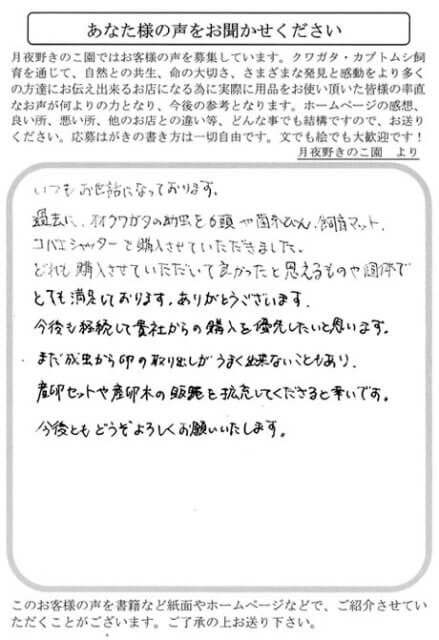 あなた様の声をお聞かせください
月夜野きのこ園ではお客様の声を募集しています。クワガタ・カブトムシ飼
育を通じて、自然との共生、命の大切さ、さまざまな発見と感動をより多く
の方達にお伝え出来るお店になる為に実際に用品をお使い頂いた皆様の率直
なお声が何よりの力となり、今後の参考となります。ホームページの感想、
良い所、悪い所、他のお店との違い等、どんな事でも結構ですので、お送り
ください。応募はがきの書き方は一切自由です。文でも絵でも大歓迎です！
月夜野きのこ園　より
いつもお世話になっております。
過去に、オオクワガタの幼虫を6頭や菌糸びん、飼育マット、
コバエシャッターで購入させていただきました。
どれも購入させていただいて良かったと思えるものや個体で
とても満足しております。ありがとうございます。
今後も継続して貴社からの購入を優先したいと思います。
まだ成虫から卵の取り出しがうまく出来ないこともあり、
産卵セットや産卵木の販売を拡充してくださると幸いです。
今後ともどうぞよろしくお願いいたします。
このお客様の声を書籍など紙面やホームページなどで、ご紹介させてい
ただくことがございます。ご了承の上お送り下さい。